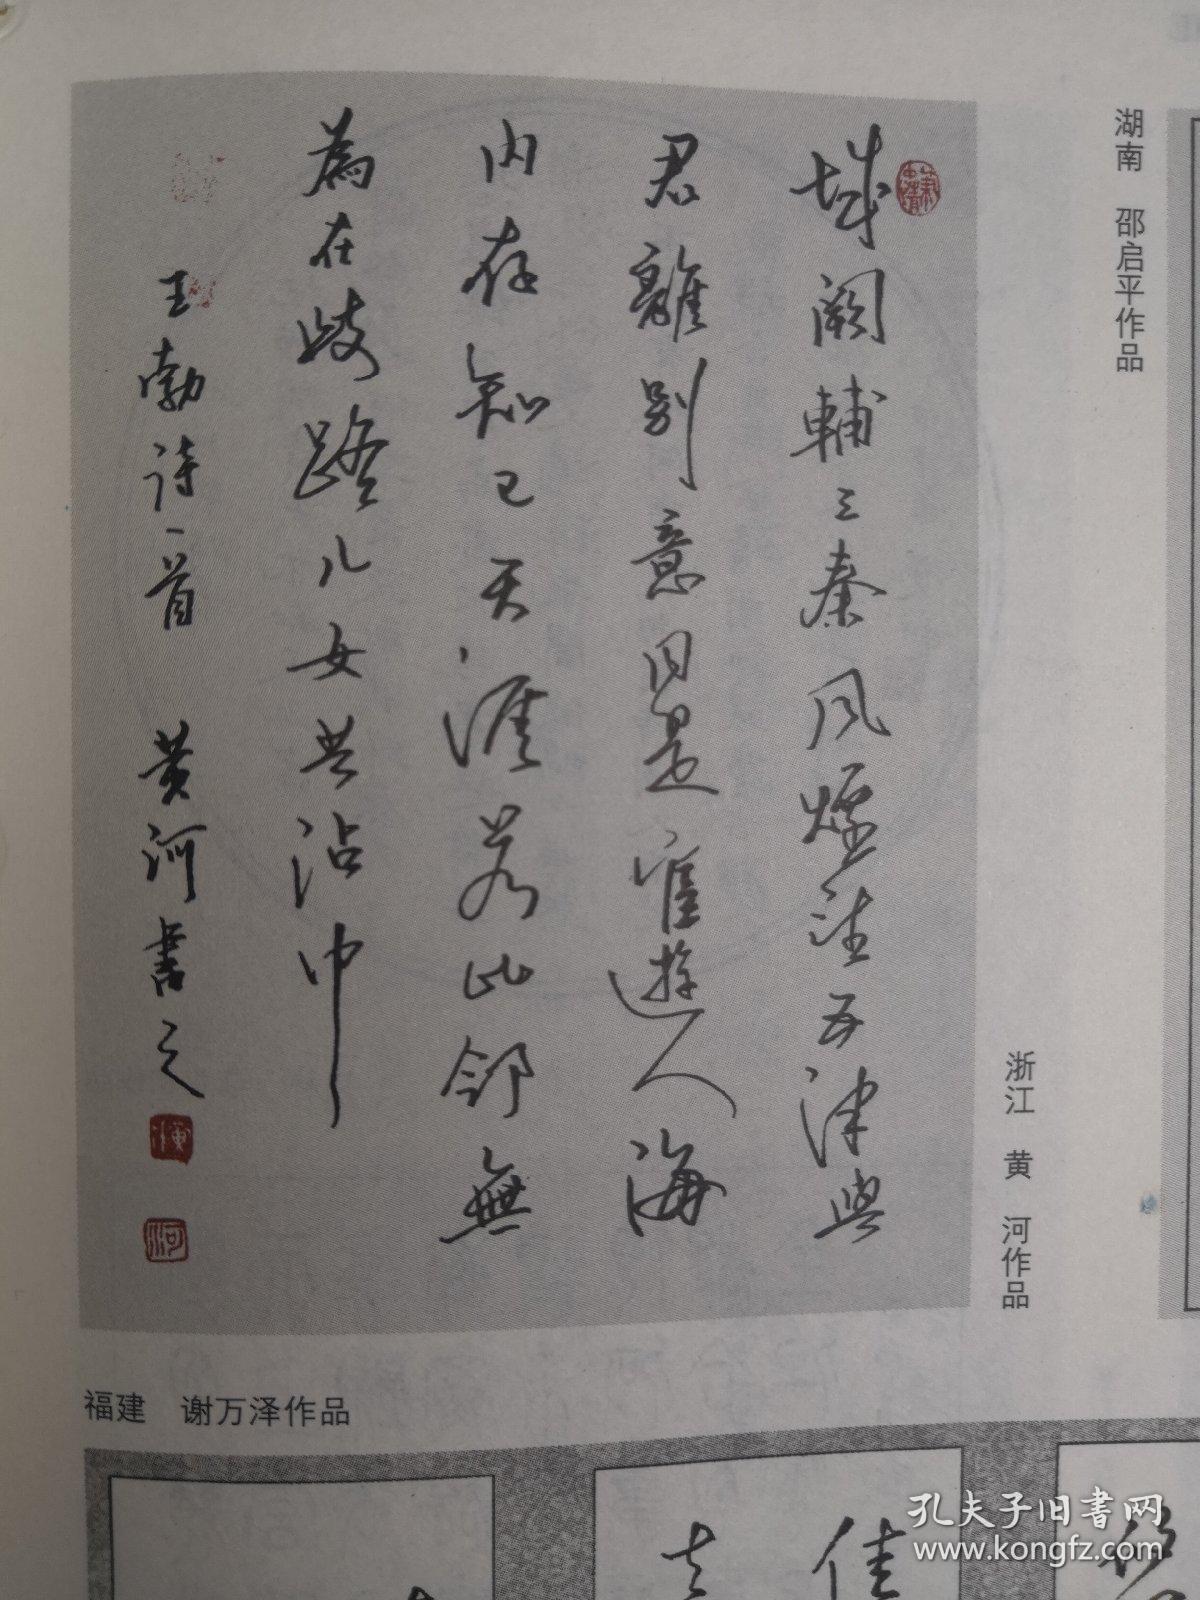 湖南 邵启平作品
浙江 黄 河作品
城闕輔三秦風煙望五津與
君離別意同是宦遊人海
内存知己天涯若比邻無
為在歧路儿女共沾巾
王勃诗一首 黄河書之
福建 谢万泽作品
佳
孔夫子旧书网
www.kongfz.com